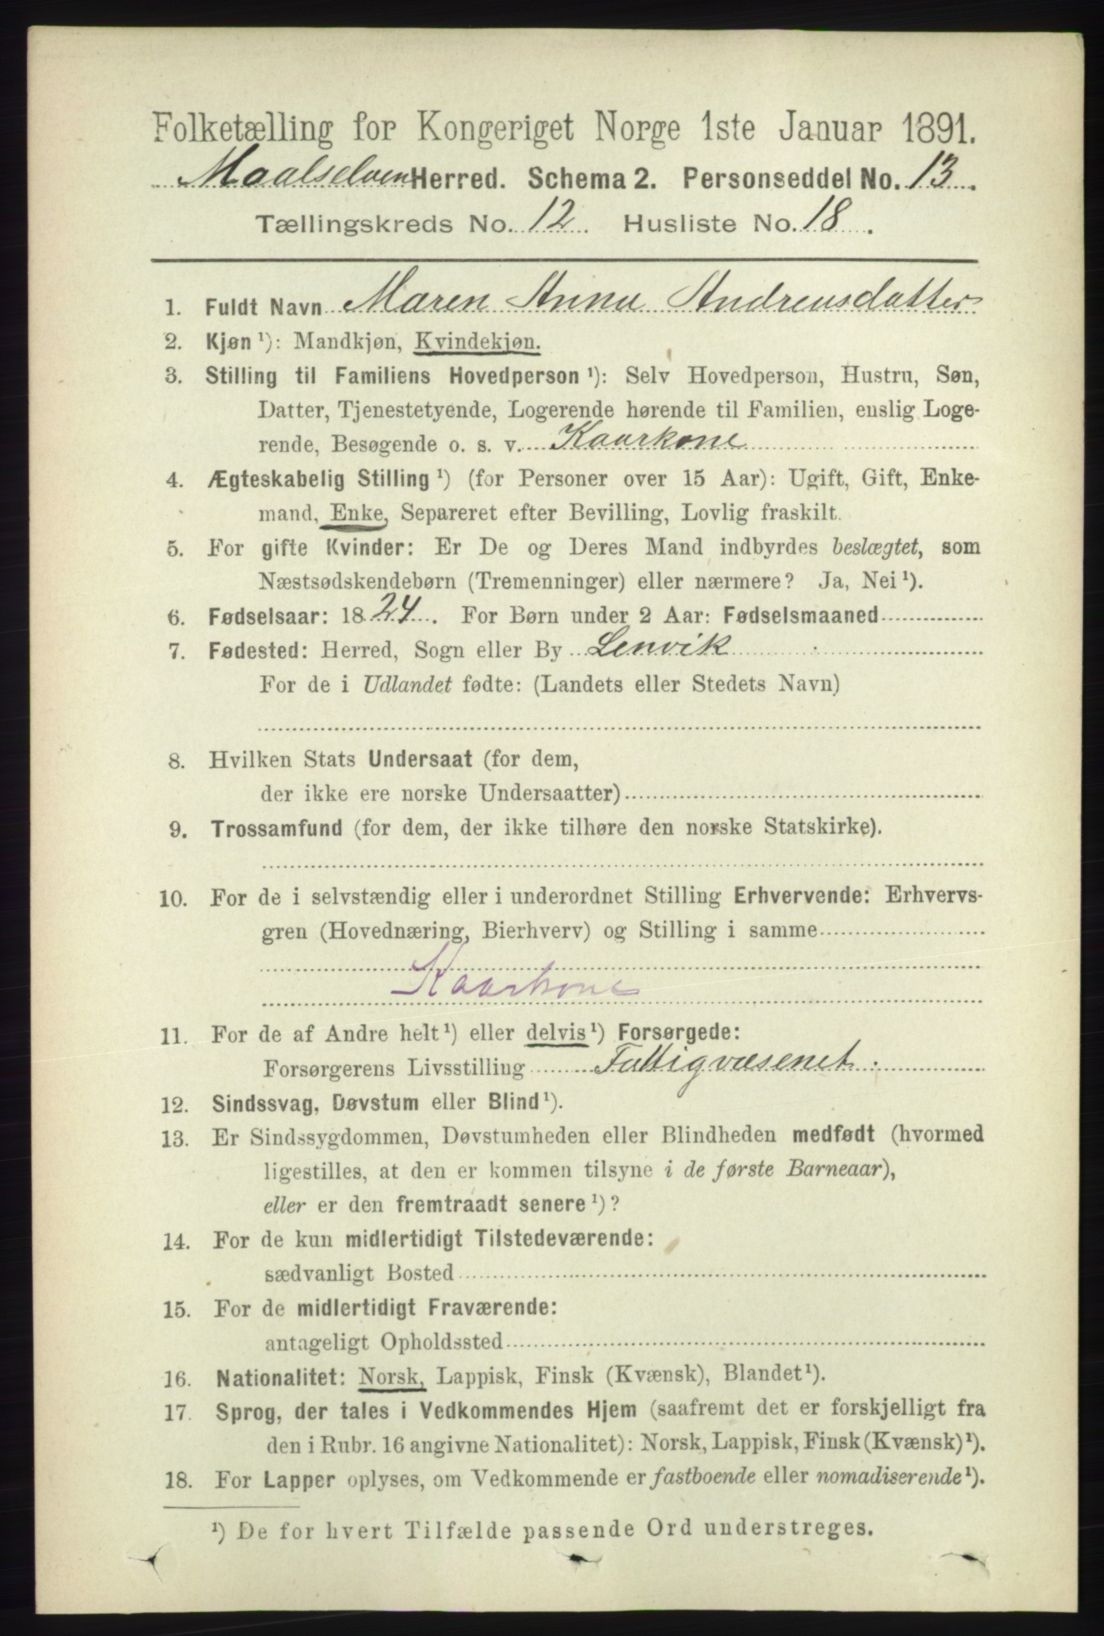 Folketælling for Kongeriget Norge 1ste Januar 1891.
Maalselven Herred. Schema 2. Personseddel No. 13.
Tællingskreds No. 12. Husliste No. 18.
1. Fuldt Navn Maren Anna Andreasdatter
2. Kjøn ¹): Mandkjøn, Kvindekjøn.
3. Stilling til Familiens Hovedperson ¹): Selv Hovedperson, Hustru, Søn,
Datter, Tjenestetyende, Logerende hørende til Familien, enslig Loge-
rende, Besøgende o. s. v. Kaarkone
4. Ægteskabelig Stilling ¹) (for Personer over 15 Aar): Ugift, Gift, Enke-
mand, Enke, Separeret efter Bevilling, Lovlig fraskilt.
5. For gifte Kvinder: Er De og Deres Mand indbyrdes beslægtet, som
Næstsødskendebørn (Tremenninger) eller nærmere? Ja, Nei ¹).
6. Fødselsaar: 1824. For Børn under 2 Aar: Fødselsmaaned
7. Fødested: Herred, Sogn eller By Lenvik
For de i Udlandet fødte: (Landets eller Stedets Navn)
8. Hvilken Stats Undersaat (for dem,
der ikke ere norske Undersaatter)
9. Trossamfund (for dem, der ikke tilhøre den norske Statskirke).
10. For de i selvstændig eller i underordnet Stilling Erhvervende: Erhvervs-
gren (Hovednæring, Bierhverv) og Stilling i samme
Kaarkone
11. For de af Andre helt ¹) eller delvis ¹) Forsørgede:
Forsørgerens Livsstilling Fattigvæsenet.
12. Sindssvag, Døvstum eller Blind ¹).
13. Er Sindssygdommen, Døvstumheden eller Blindheden medfødt (hvormed
ligestilles, at den er kommen tilsyne i de første Barneaar),
eller er den fremtraadt senere ¹)?
14. For de kun midlertidigt Tilstedeværende:
sædvanligt Bosted
15. For de midlertidigt Fraværende:
antageligt Opholdssted
16. Nationalitet: Norsk, Lappisk, Finsk (Kvænsk), Blandet ¹).
17. Sprog, der tales i Vedkommendes Hjem (saafremt det er forskjelligt fra
den i Rubr. 16 angivne Nationalitet): Norsk, Lappisk, Finsk (Kvænsk) ¹).
18. For Lapper oplyses, om Vedkommende er fastboende eller nomadiserende ¹).
¹) De for hvert Tilfælde passende Ord understreges.